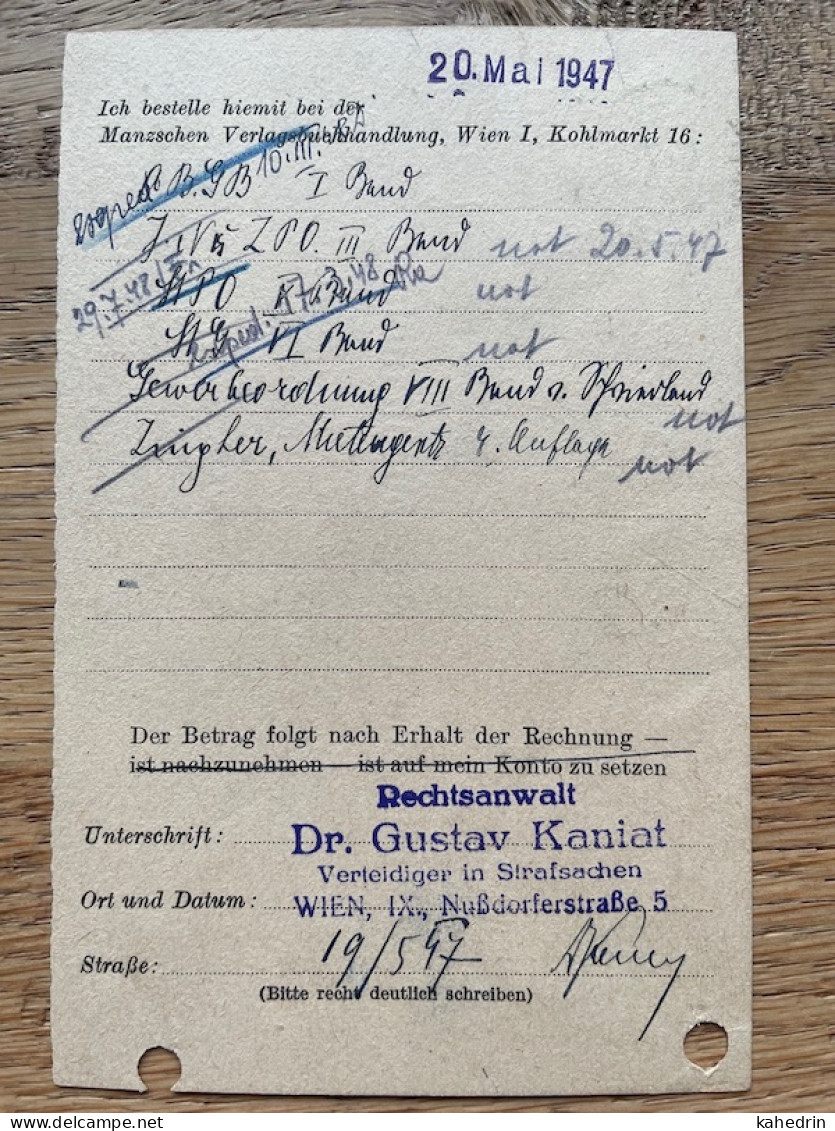 20. Mai 1947
Ich bestelle hiemit bei der
Manzschen Verlagsbuchhandlung, Wien I, Kohlmarkt 16:
exped. 10. III.
A.B.GB I Band
ZPO. III Band not 20.5.47
29.7.48
StPO Band not
exped. 48
StG VI Band not
Gewerbeordnung VIII Band v.
not
Mietengesetz 4. Auflage
not
Der Betrag folgt nach Erhalt der Rechnung —
ist nachzunehmen — ist auf mein Konto zu setzen
Rechtsanwalt
Unterschrift: Dr. Gustav Kaniat
Verteidiger in Strafsachen
Ort und Datum: WIEN, IX., Nußdorferstraße 5
Straße: 19/5 47
(Bitte recht deutlich schreiben)
kahedrin